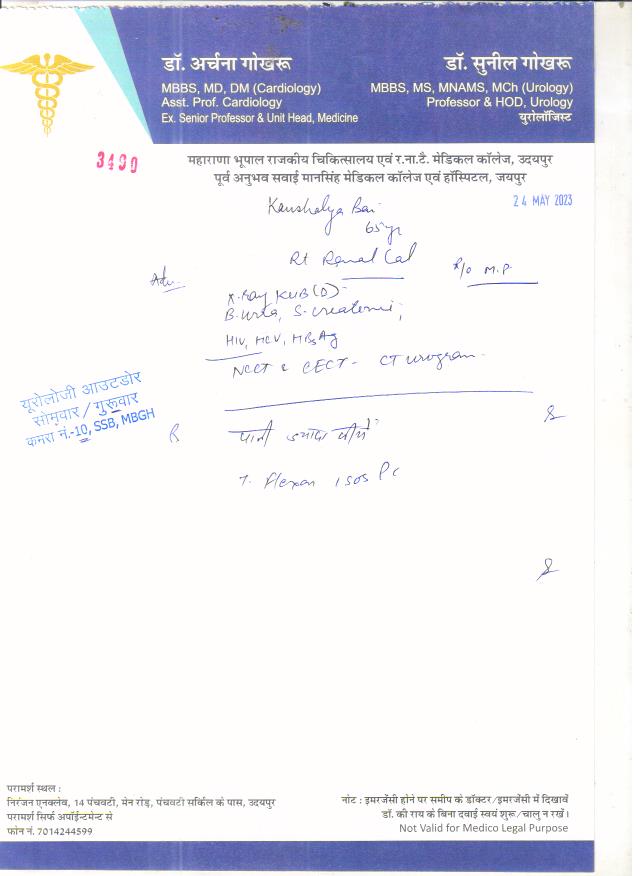 डॉ. अर्चना गोखरू
MBBS, MD, DM (Cardiology)
Asst. Prof. Cardiology
Ex. Senior Professor & Unit Head, Medicine
डॉ. सुनील गोखरू
MBBS, MS, MNAMS, MCh (Urology)
Professor & HOD, Urology
युरोलॉजिस्ट
3490
महाराणा भूपाल राजकीय चिकित्सालय एवं र.ना.टै. मेडिकल कॉलेज, उदयपुर
पूर्व अनुभव सवाई मानसिंह मेडिकल कॉलेज एवं हॉस्पिटल, जयपुर
24 MAY 2023
Kaushalya Bai
65 yr
Rt Renal Cal
R/o M.P.
Adv.
X-Ray KUB (D)
B. urea, S. creatinine,
HIV, HCV, HBsAg
NCCT & CECT - CT urogram
यूरोलोजी आउटडोर
सोमवार / गुरूवार
कमरा नं.-10, SSB, MBGH
R पानी ज्यादा पीये
T. Flexon 1 SOS PC
परामर्श स्थल :
निरंजन एनक्लेव, 14 पंचवटी, मेन रोड़, पंचवटी सर्किल के पास, उदयपुर
परामर्श सिर्फ अपॉईन्टमेन्ट से
फोन नं. 7014244599
नोट : इमरजेंसी होने पर समीप के डॉक्टर/इमरजेंसी में दिखावें
डॉ. की राय के बिना दवाई स्वयं शुरू/चालु न रखें।
Not Valid for Medico Legal Purpose